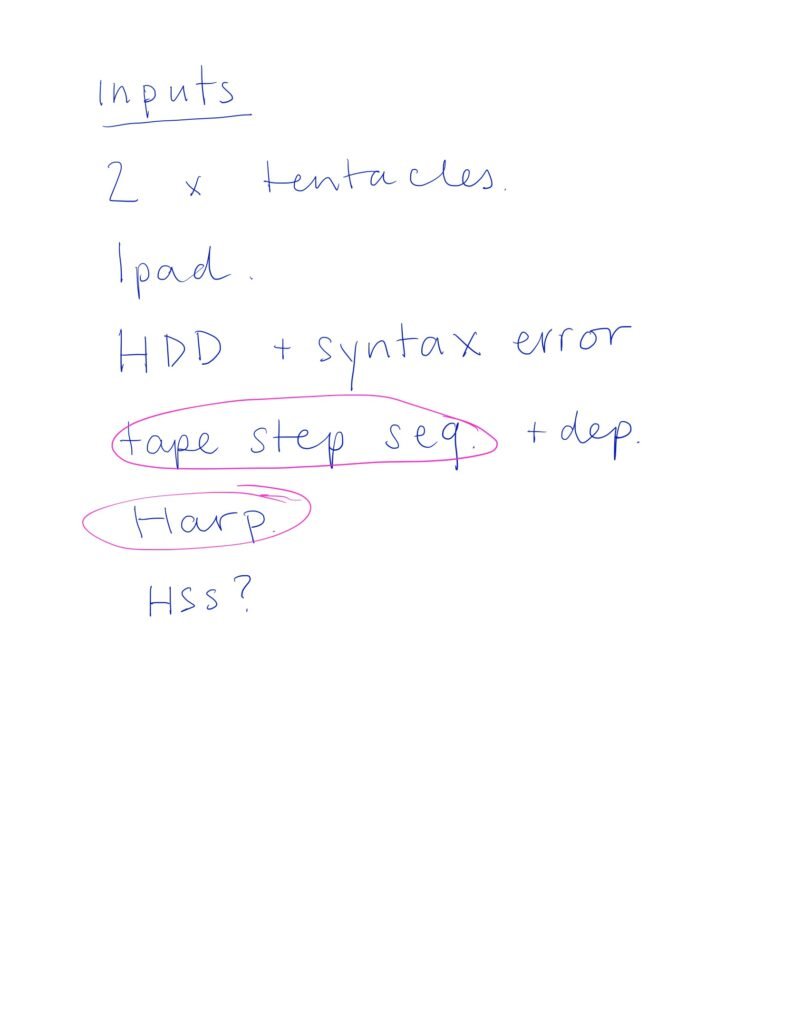 Inputs
2 x tentacles.
Ipad.
HDD + syntax error
tape step seq. + dep.
Harp.
HSS?